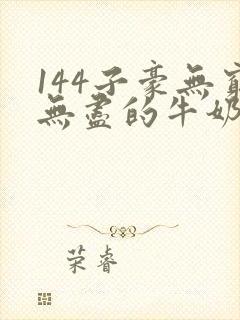 144子豪無窮
無盡的牛奶
荣睿